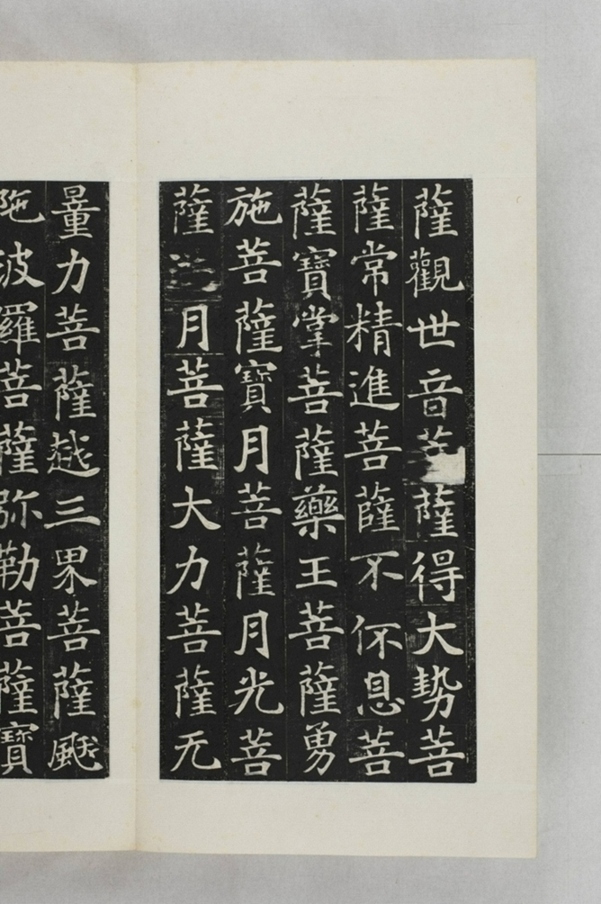 薩觀世音菩薩得大勢菩
薩常精進菩薩不休息菩
薩寶掌菩薩藥王菩薩勇
施菩薩寶月菩薩月光菩
薩月菩薩大力菩薩无
量力菩薩越三界菩薩颰
陁波羅菩薩弥勒菩薩寶